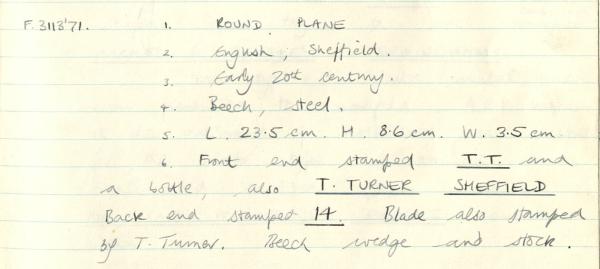 F.3113'71. 1. ROUND PLANE
2. English, Sheffield.
3. Early 20th century.
4. Beech, steel.
5. L. 23.5 cm. H. 8.6 cm. W. 3.5 cm
6. Front end stamped T.T. and
a bottle, also T. TURNER SHEFFIELD
Back end stamped 14. Blade also stamped
by T. Turner. Beech wedge and stock.